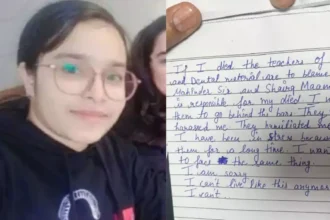 If I died the teachers of
and Dental material are to blame
Mahinder Sir and Shairg Maam
is responible for my died I
them to go behind the bars They
harassed me They humiliated me
I have been in stress because
them for a long time I want
to face the same thing
I am sorry
I can't live like this anymore
I want